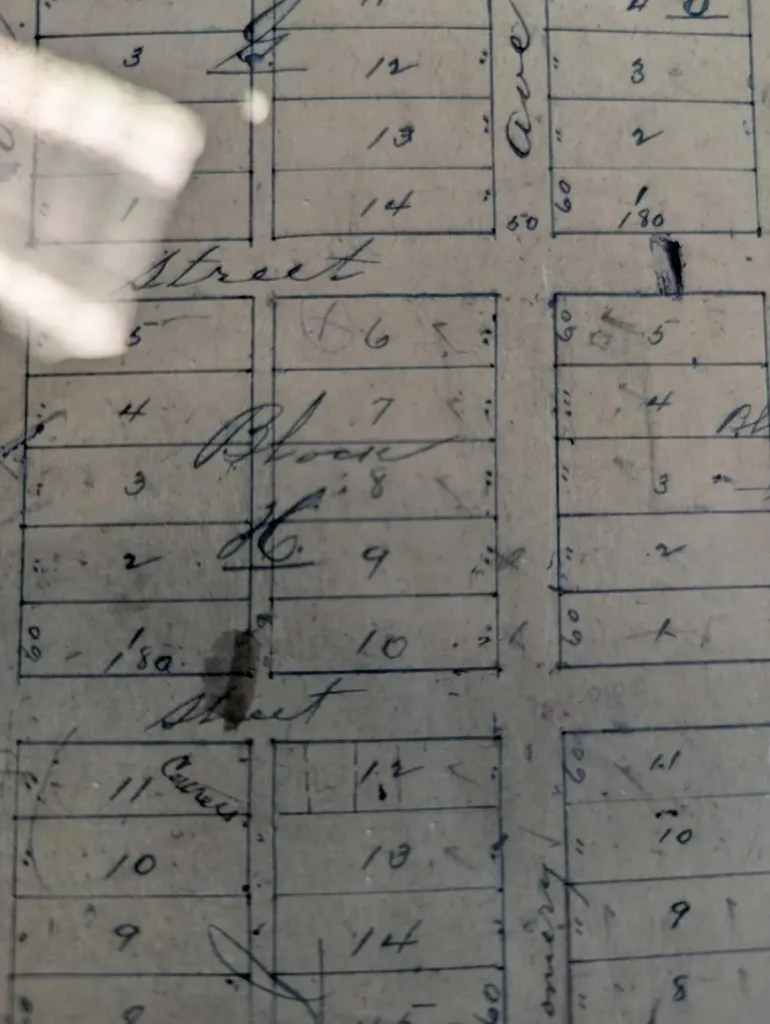 4
3 12 " Ave " 3
13 " " 2
" 1 14 " 50 60 1
180
Street
5 6 " 60 5
" 4 7 " " 4
Block Bl
" 3 8 " " 3
H
" 2 9 " " 2
60 1 180 10 " 60 1
Street
" 11 12 " 60 11
" 10 13 " " 10
" 9 14 " 9
omery
8 60 " 8